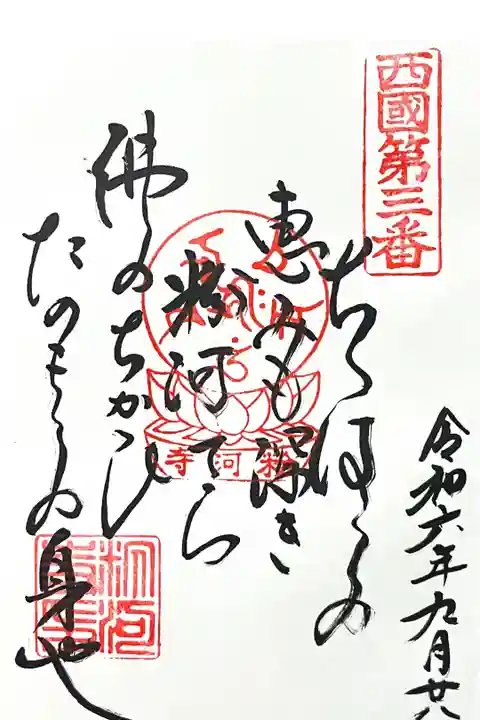 西國第三番
ちゝはゝの
恵みも深き
粉河てら
佛のちかひ
たのもしの身や
粉河寺
粉河
令和六年九月廿八